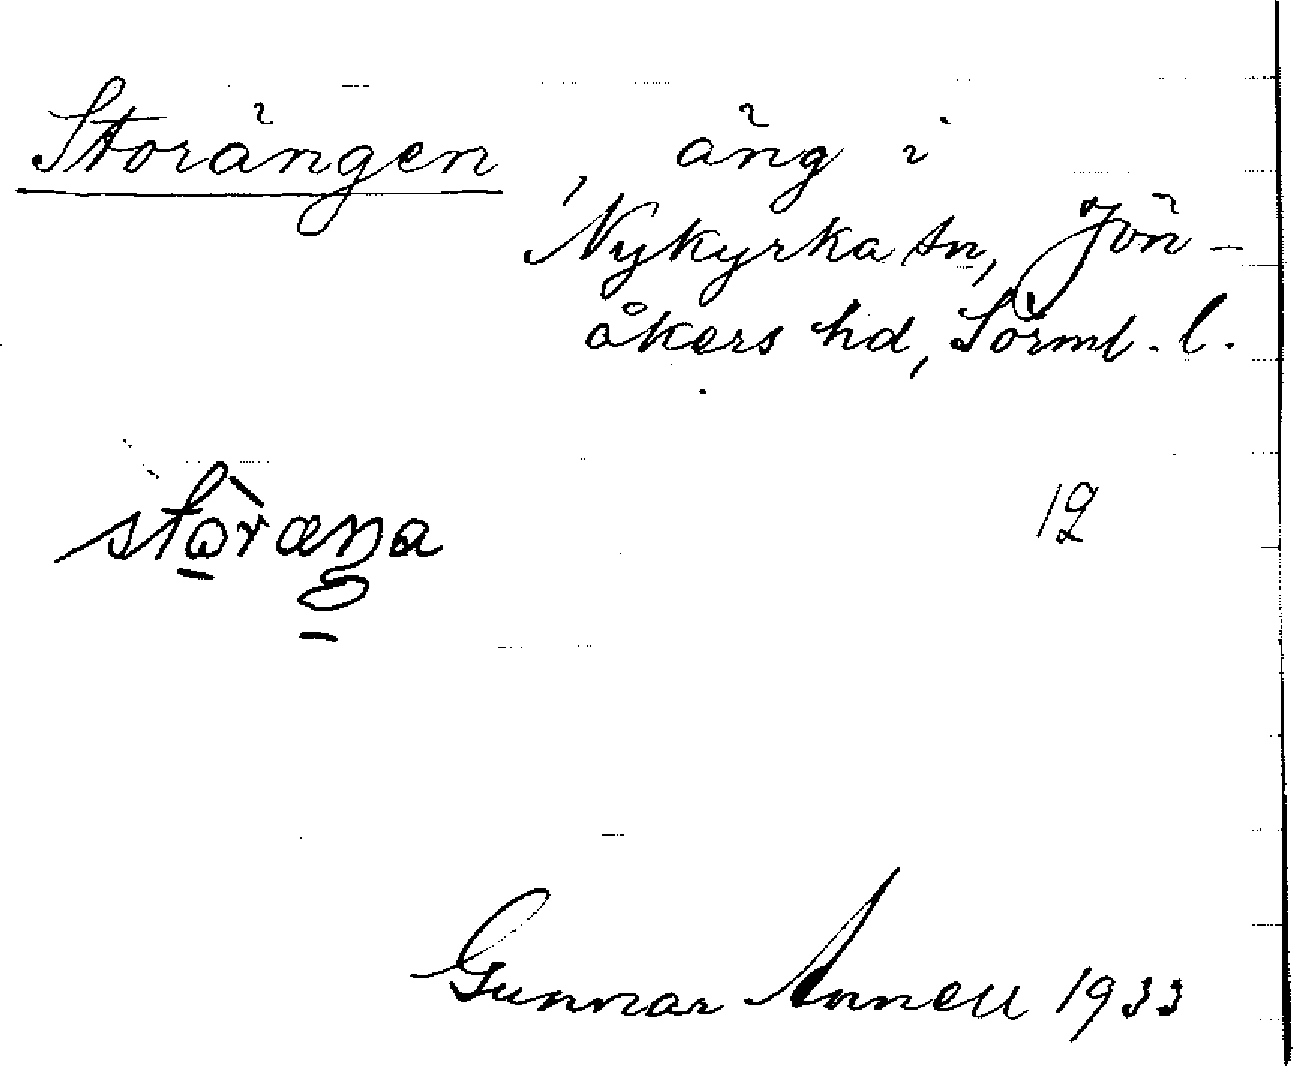 Storängen äng i
Nykyrka sn, Jön-
åkers hd, Sörml. l.
12
Gunnar Annell 1933